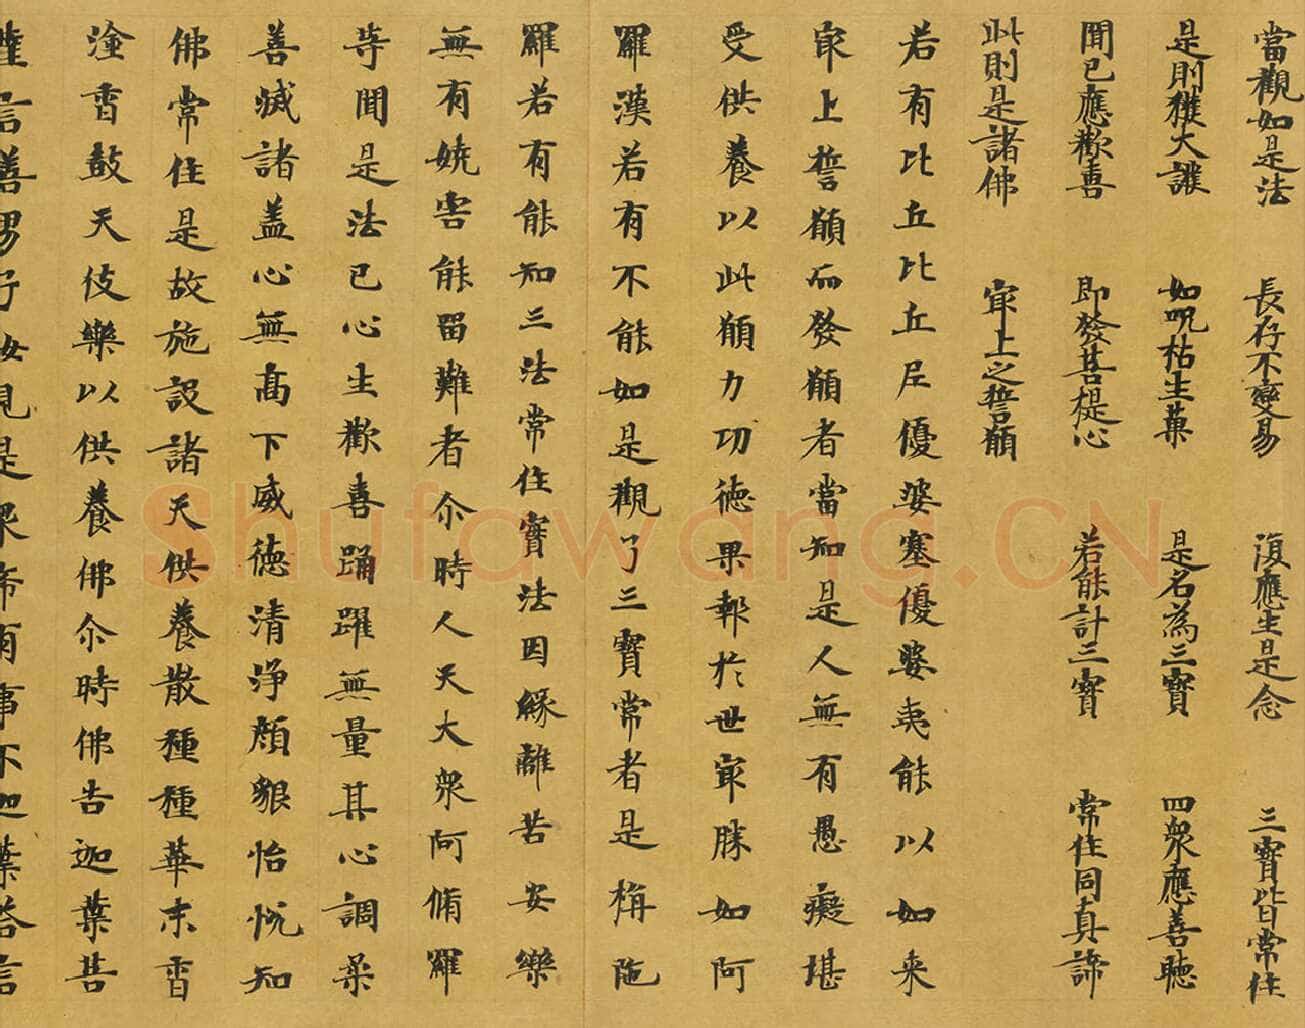 當觀如是法 長存不變易 復應生是念 三寶皆常住
是則獲大護 如呪枯生菓 是名為三寶 四衆應善聽
聞已應歡喜 即發菩提心 若能計三寶 常住同真諦
此則是諸佛 㝡上之誓願
若有比丘比丘尼優婆塞優婆夷能以如来
㝡上誓願而發願者當知是人無有愚癡堪
受供養以此願力功德果報於世㝡勝如阿
羅漢若有不能如是觀了三寶常者是栴陁
羅若有能知三法常住實法因緣離苦安樂
無有嬈害能留難者尒時人天大衆阿脩羅
等聞是法已心生歡喜踊躍無量其心調柔
善滅諸盖心無高下威德清淨顔貌怡悅知
佛常住是故施設諸天供養散種種華末香
塗香鼓天伎樂以供養佛尒時佛告迦葉菩
言善男子汝見是衆希有事不迦葉荅言
Shufawang.CN